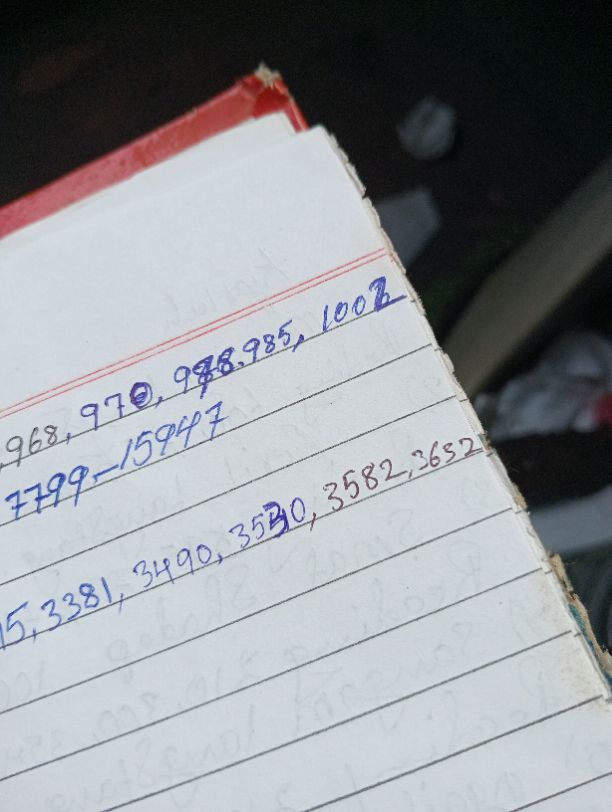 ,968, 970, 978.985, 1002
7799-15947
15,3381,3490,3530,3582,3632